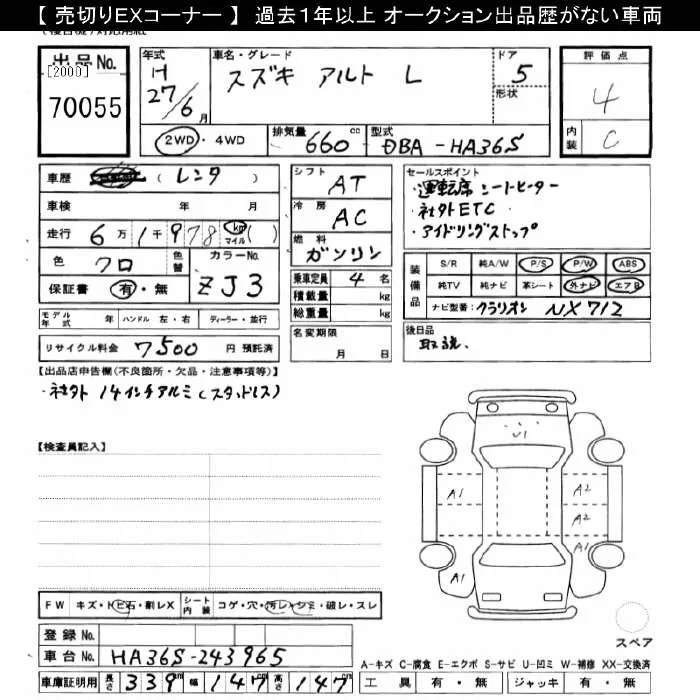 【 売切りEXコーナー 】 過去1年以上 オークション出品歴がない車両
出品No.
[2000]
70055
年式
H
27/6月
車名・グレード
スズキ アルト L
ドア
5
形状
評価点
4
内装
C
2WD・4WD
排気量 660 cc
型式 DBA-HA36S
車歴 (レンタ)
車検 年 月
走行 6万1千978 km マイル ( )
色 クロ 色替
カラーNo. ZJ3
保証書 有・無
シフト AT
冷房 AC
燃料 ガソリン
乗車定員 4 名
積載量 kg
総重量 kg
セールスポイント
・運転席シートヒーター
・社外ETC
・アイドリングストップ
装備品
S/R 純A/W P/S P/W ABS
純TV 純ナビ 革シート 外ナビ エアB
ナビ型番 クラリオン NX712
モデル年式 年 ハンドル 左・右 ディーラー・並行
名変期限 月 日
後日品
取説、
リサイクル料金 7500 円 預託済
【出品店申告欄(不良箇所・欠品・注意事項等)】
・社外 14インチアルミ(スタッドレス)
【検査員記入】
U1
A1 A2
A2
A1 A1
FW キズ・トビ石・割レX シート内装 コゲ・穴・汚レ・シミ・破レ・スレ
登録No.
車台No. HA36S-243965
車庫証明用 長さ 339 cm 幅 147 cm 高さ 147 cm
スペア
A-キズ C-腐食 E-エクボ S-サビ U-凹ミ W-補修 XX-交換済
工具 有・無 ジャッキ 有・無